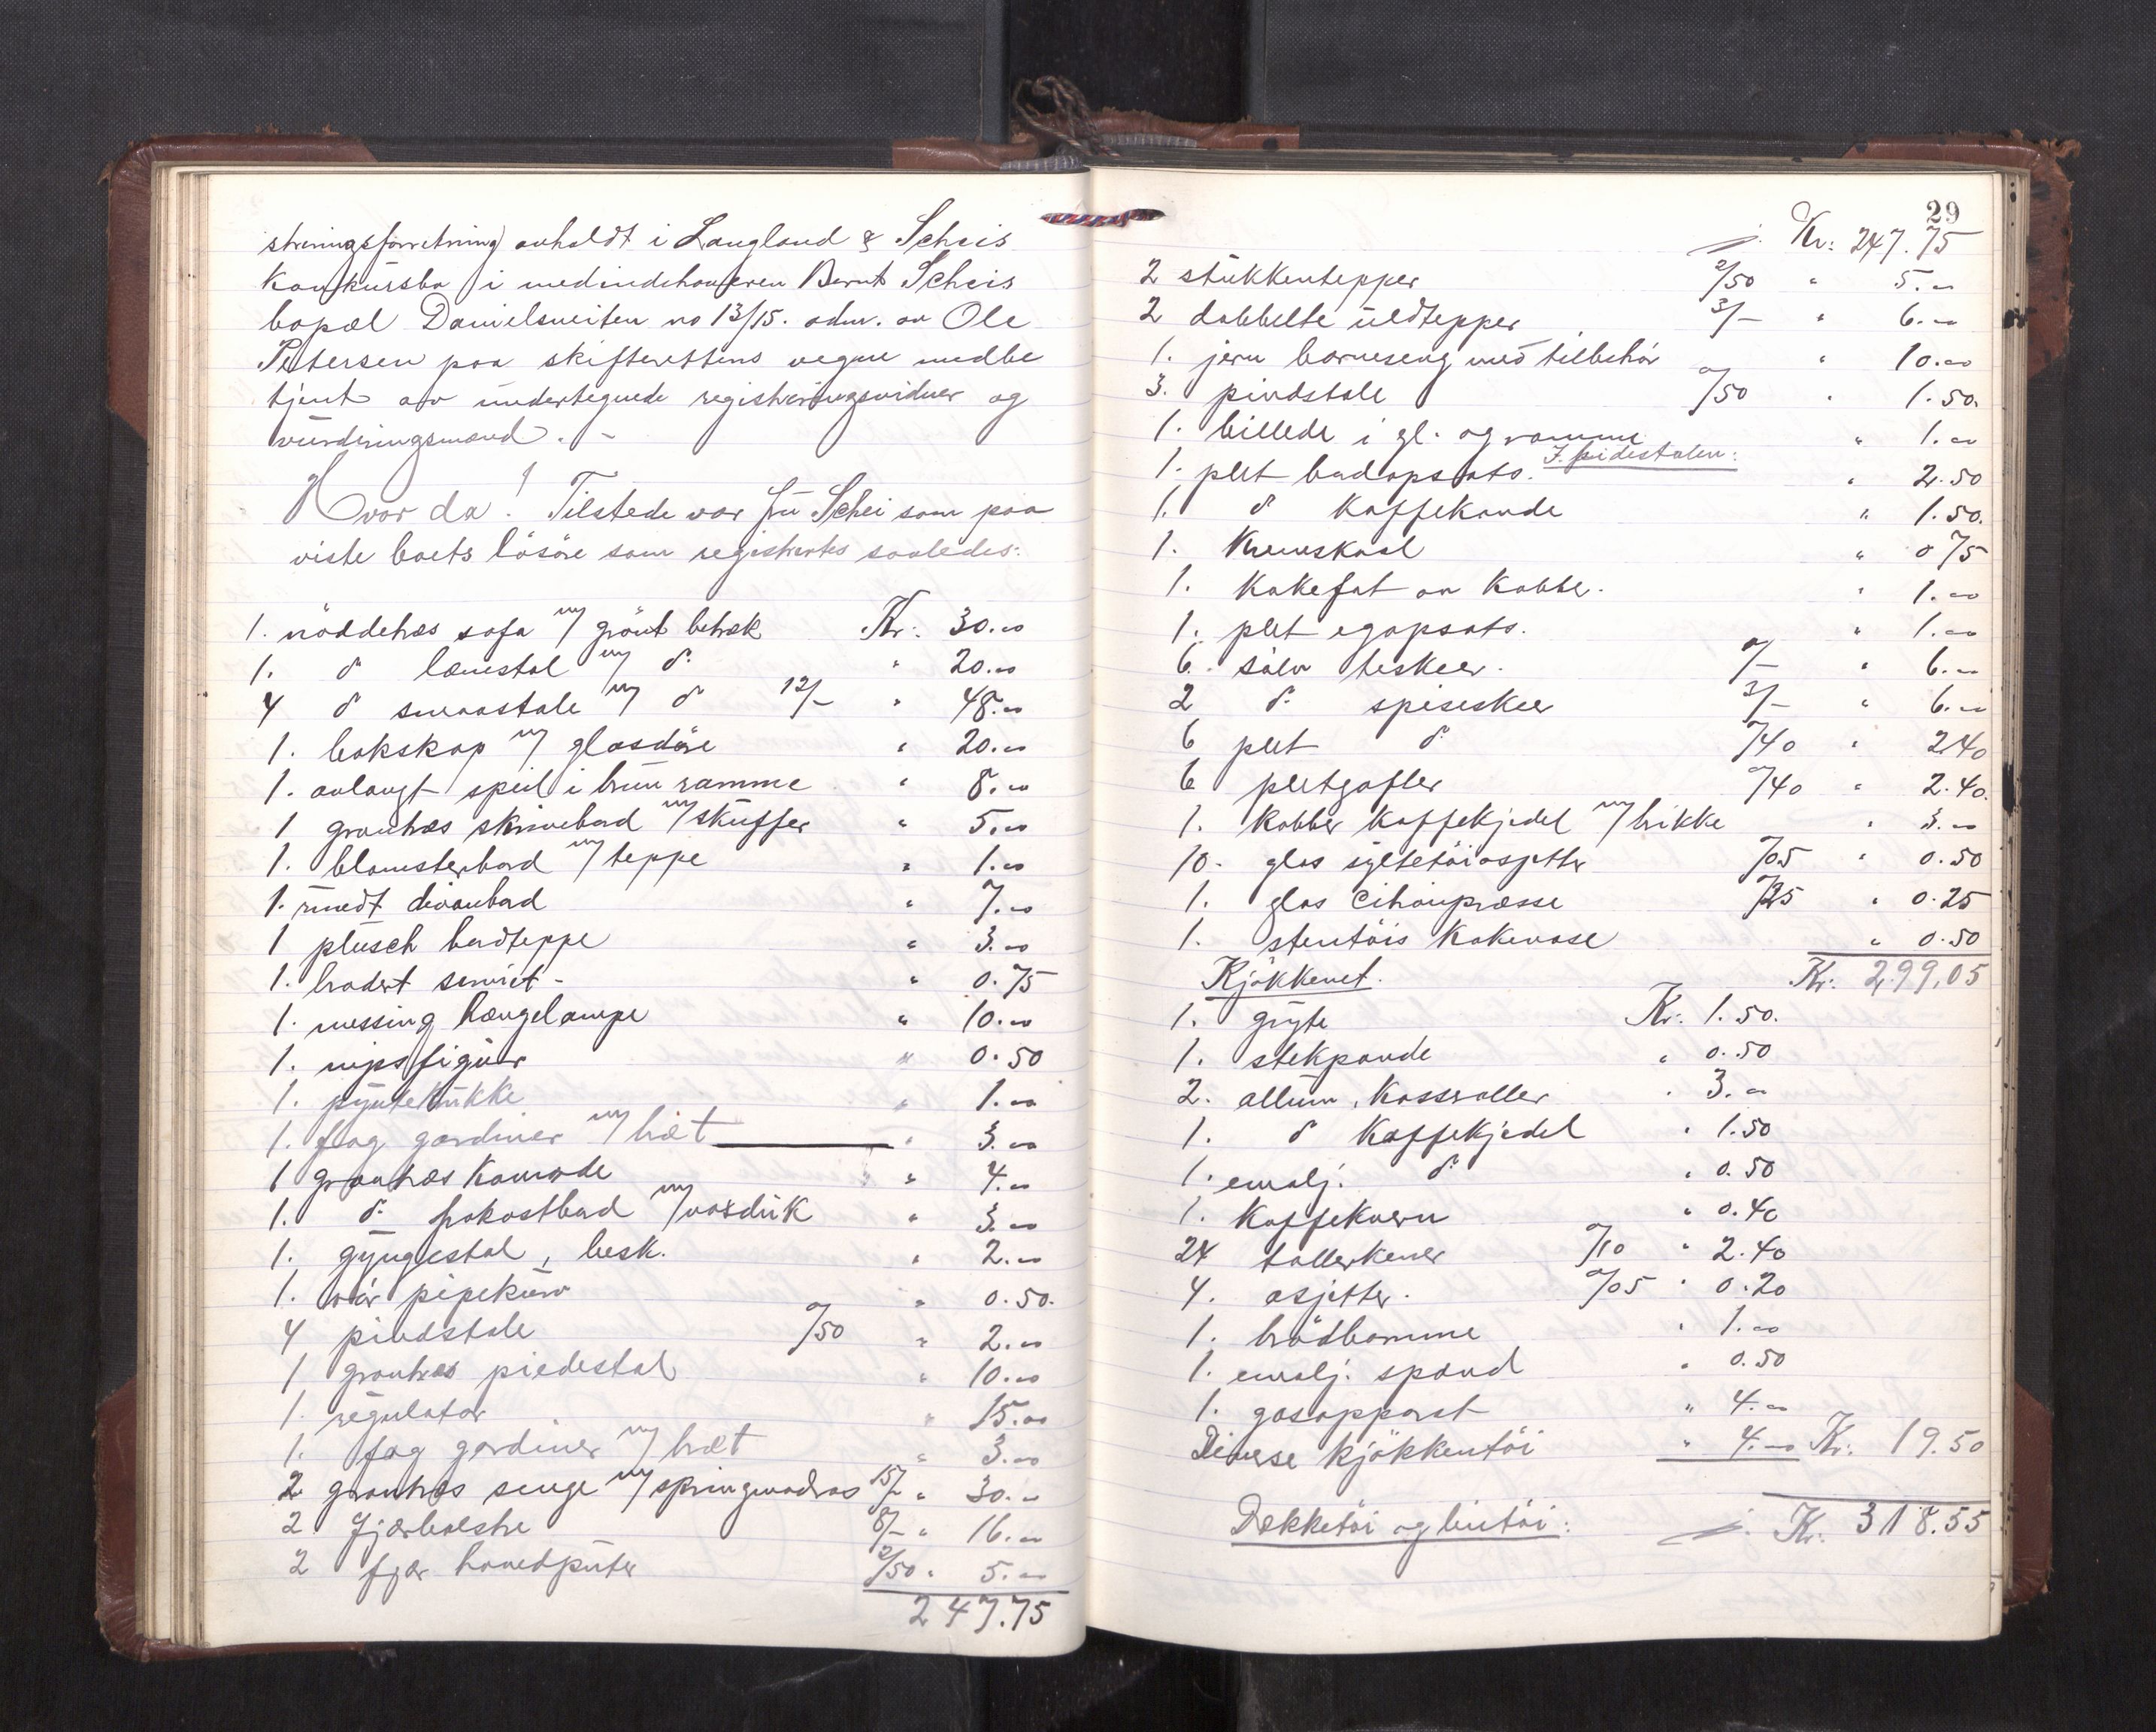 streringsforretning avholdt i Langland & Scheis
Konkursbo i medindehaveren Bernt Scheis
bopæl Damelsveiten no 13/15. adm. av Ole
Petersen paa skifterettens vegne medbe
tjent av undertegnede registreringsvidner og
vurderingsmænd. -
Hvor da! Tilstede var Fru Schei som paa
viste boets lösöre som registrertes saaledes:
1. nöddetræs sofa m/ grönt betræk Kr: 30.00
1. do lænestol m/ do. " 20.00
4 do smaastole m/ do 12/- " 48.00
1. bokskap m/ glasdöre " 20.00
1. avlangt speil i brun ramme " 8.00
1 grantræs skrivebord m/ skuffer " 5.00
1. blomsterbord m/ teppe " 1.00
1. rundt divanbord " 7.00
1 plüsch bordteppe " 3.00
1. brodert serviet - " 0.75
1. messing hængelampe " 10.00
1. nipsfigur " 0.50
1. pyntekrukke " 1.00
1. fag gardiner m/ bræt " 3.00
1 grantræs Komode " 4.00
1. do. frokostbord m/ voxduk " 3.00
1. gyngestol, besk. " 2.00
1. rör pipekurv " 0.50.
4 pindstole "/50 " 2.00
1 grantræs piedestal " 10.00
1. regulator " 15.00
1. fag gardiner m/ bræt " 3.00
2 grantræs senge m/ springmadras 15/- " 30.00
2 fjærbolstre 8/- " 16.00
2 fjær hovedputer 2/50 " 5.00
247.75
29
Kr: 247.75
2 stukkentepper 2/50 " 5.00
2 dobbelte uldtepper 3/- " 6.00
1. jern barneseng med tilbehör " 10.00
3. pindstole "/50 " 1.50.
1. billede i gl. og ramme " 1.00
I pidestalen:
1. plet bordopsats. " 2.50
1. do Kaffekande " 1.50.
1. Kremskaal " 0 75
1. Kakefat av Kobber. " 1.00
1. plet egopsats. " 1.00
6. sölv teskeer. 1/- " 6.00
2 do. spiseskeer 3/- " 6.00
6 plet do "/40 " 2.40
6 pletgafler "/40 " 2.40.
1. Kobber Kaffekjedel m/ brikke " 3.00
10. glas syltetöiasjetter "/05 " 0.50
1. glas citronpresse "/25 " 0.25
1. stentöis Kakevase " 0.50
Kjökkenet. Kr: 299,05
1. gryte Kr: 1.50.
1. stekpande " 0.50
2. allum. Kasseroller " 3.00
1. do Kaffekjedel " 1.50
1. emalj. do. " 0.50
1. Kaffekvern " 0.40
24 tallerkener "/10 " 2.40
4. asjetter. "/05 " 0.20
1. brödbomme " 1.00
1. emalj. spand " 0.50
1. gasapparat " 4.00
Diverse Kjökkentöi " 4.00 Kr: 19.50
Dækketöi og lintöi: Kr: 318.55